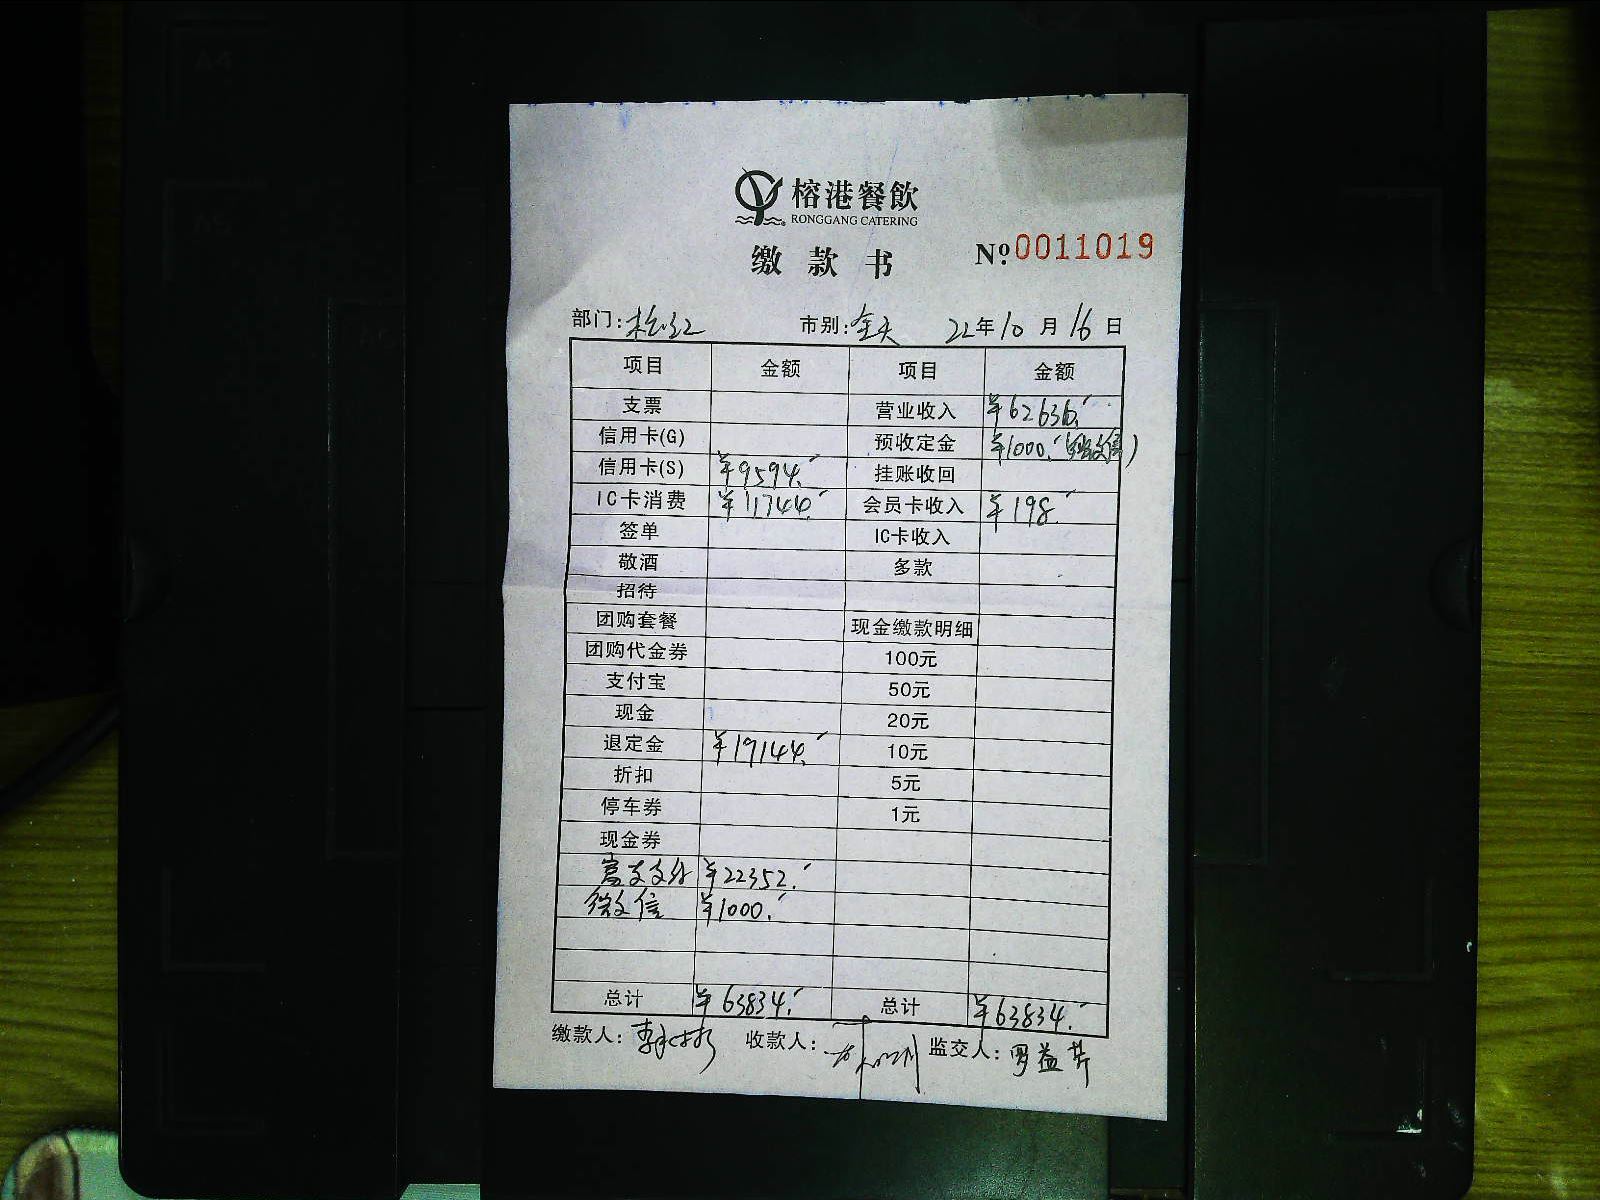 榕港餐飲
RONGGANG CATERING
缴款书
Nº:0011019
部门:松江 市别:全天 22年10月16日
项目 金额 项目 金额
支票 营业收入 ¥62636.
信用卡(G) 预收定金 ¥1000.(微信)
信用卡(S) ¥9594. 挂账收回
IC卡消费 ¥11744. 会员卡收入 ¥198.
签单 IC卡收入
敬酒 多款
招待
团购套餐 现金缴款明细
团购代金券 100元
支付宝 50元
现金 20元
退定金 ¥19144. 10元
折扣 5元
停车券 1元
现金券
¥22352.
微信 ¥1000.
总计 ¥63834. 总计 ¥63834.
缴款人: 收款人: 监交人:罗益芹
A4
A5